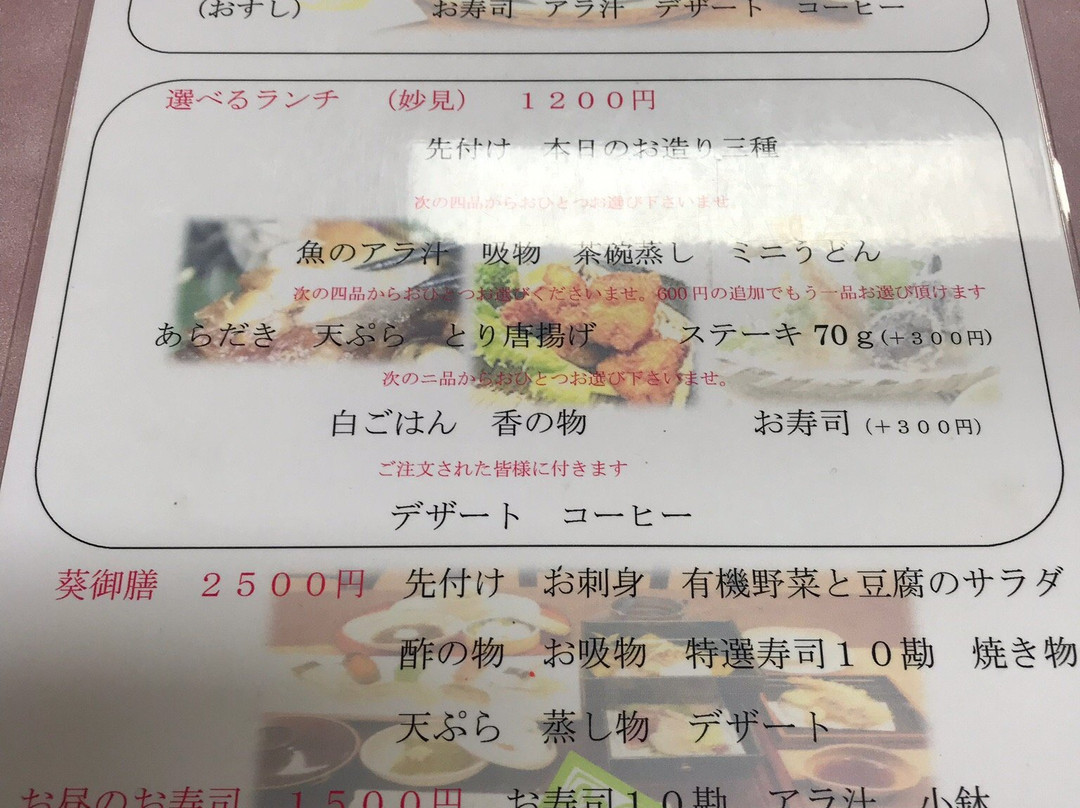 (おすし) お寿司 アラ汁 デザート コーヒー
選べるランチ (妙見) 1200円
先付け 本日のお造り三種
次の四品がらおひとつお選び下さいませ。
魚のアラ汁 吸物 茶碗蒸し ミニうどん
次の四品からおひとつお選びくださいませ。600円の追加でもう一品お選び頂けます
あらだき 天ぷら とり唐揚げ ステーキ 70g(+300円)
次のニ品からおひとつお選び下さいませ。
白ごはん 香の物 お寿司 (+300円)
ご注文された皆様に付きます
デザート コーヒー
葵御膳 2500円 先付け お刺身 有機野菜と豆腐のサラダ
酢の物 お吸物 特選寿司10勘 焼き物
天ぷら 蒸し物 デザート
お昼のお寿司 1500円 お寿司10勘 アラ汁 小鉢